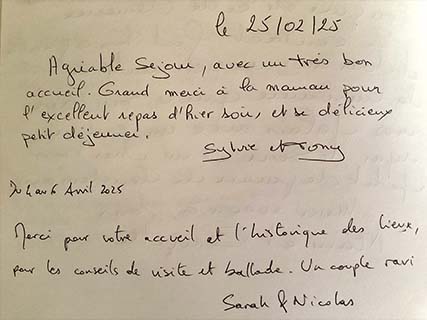 le 25/02/25
Agréable Sejour, avec un très bon
accueil. Grand merci à la maman pour
l'excellent repas d'hier soir, et se délicieux
petit déjeuner.
Sylvie et Tony
Du 4 au 6 Avril 2025
Merci pour votre accueil et l'historique des lieux,
pour les conseils de visite et ballade. Un couple ravi
Sarah & Nicolas